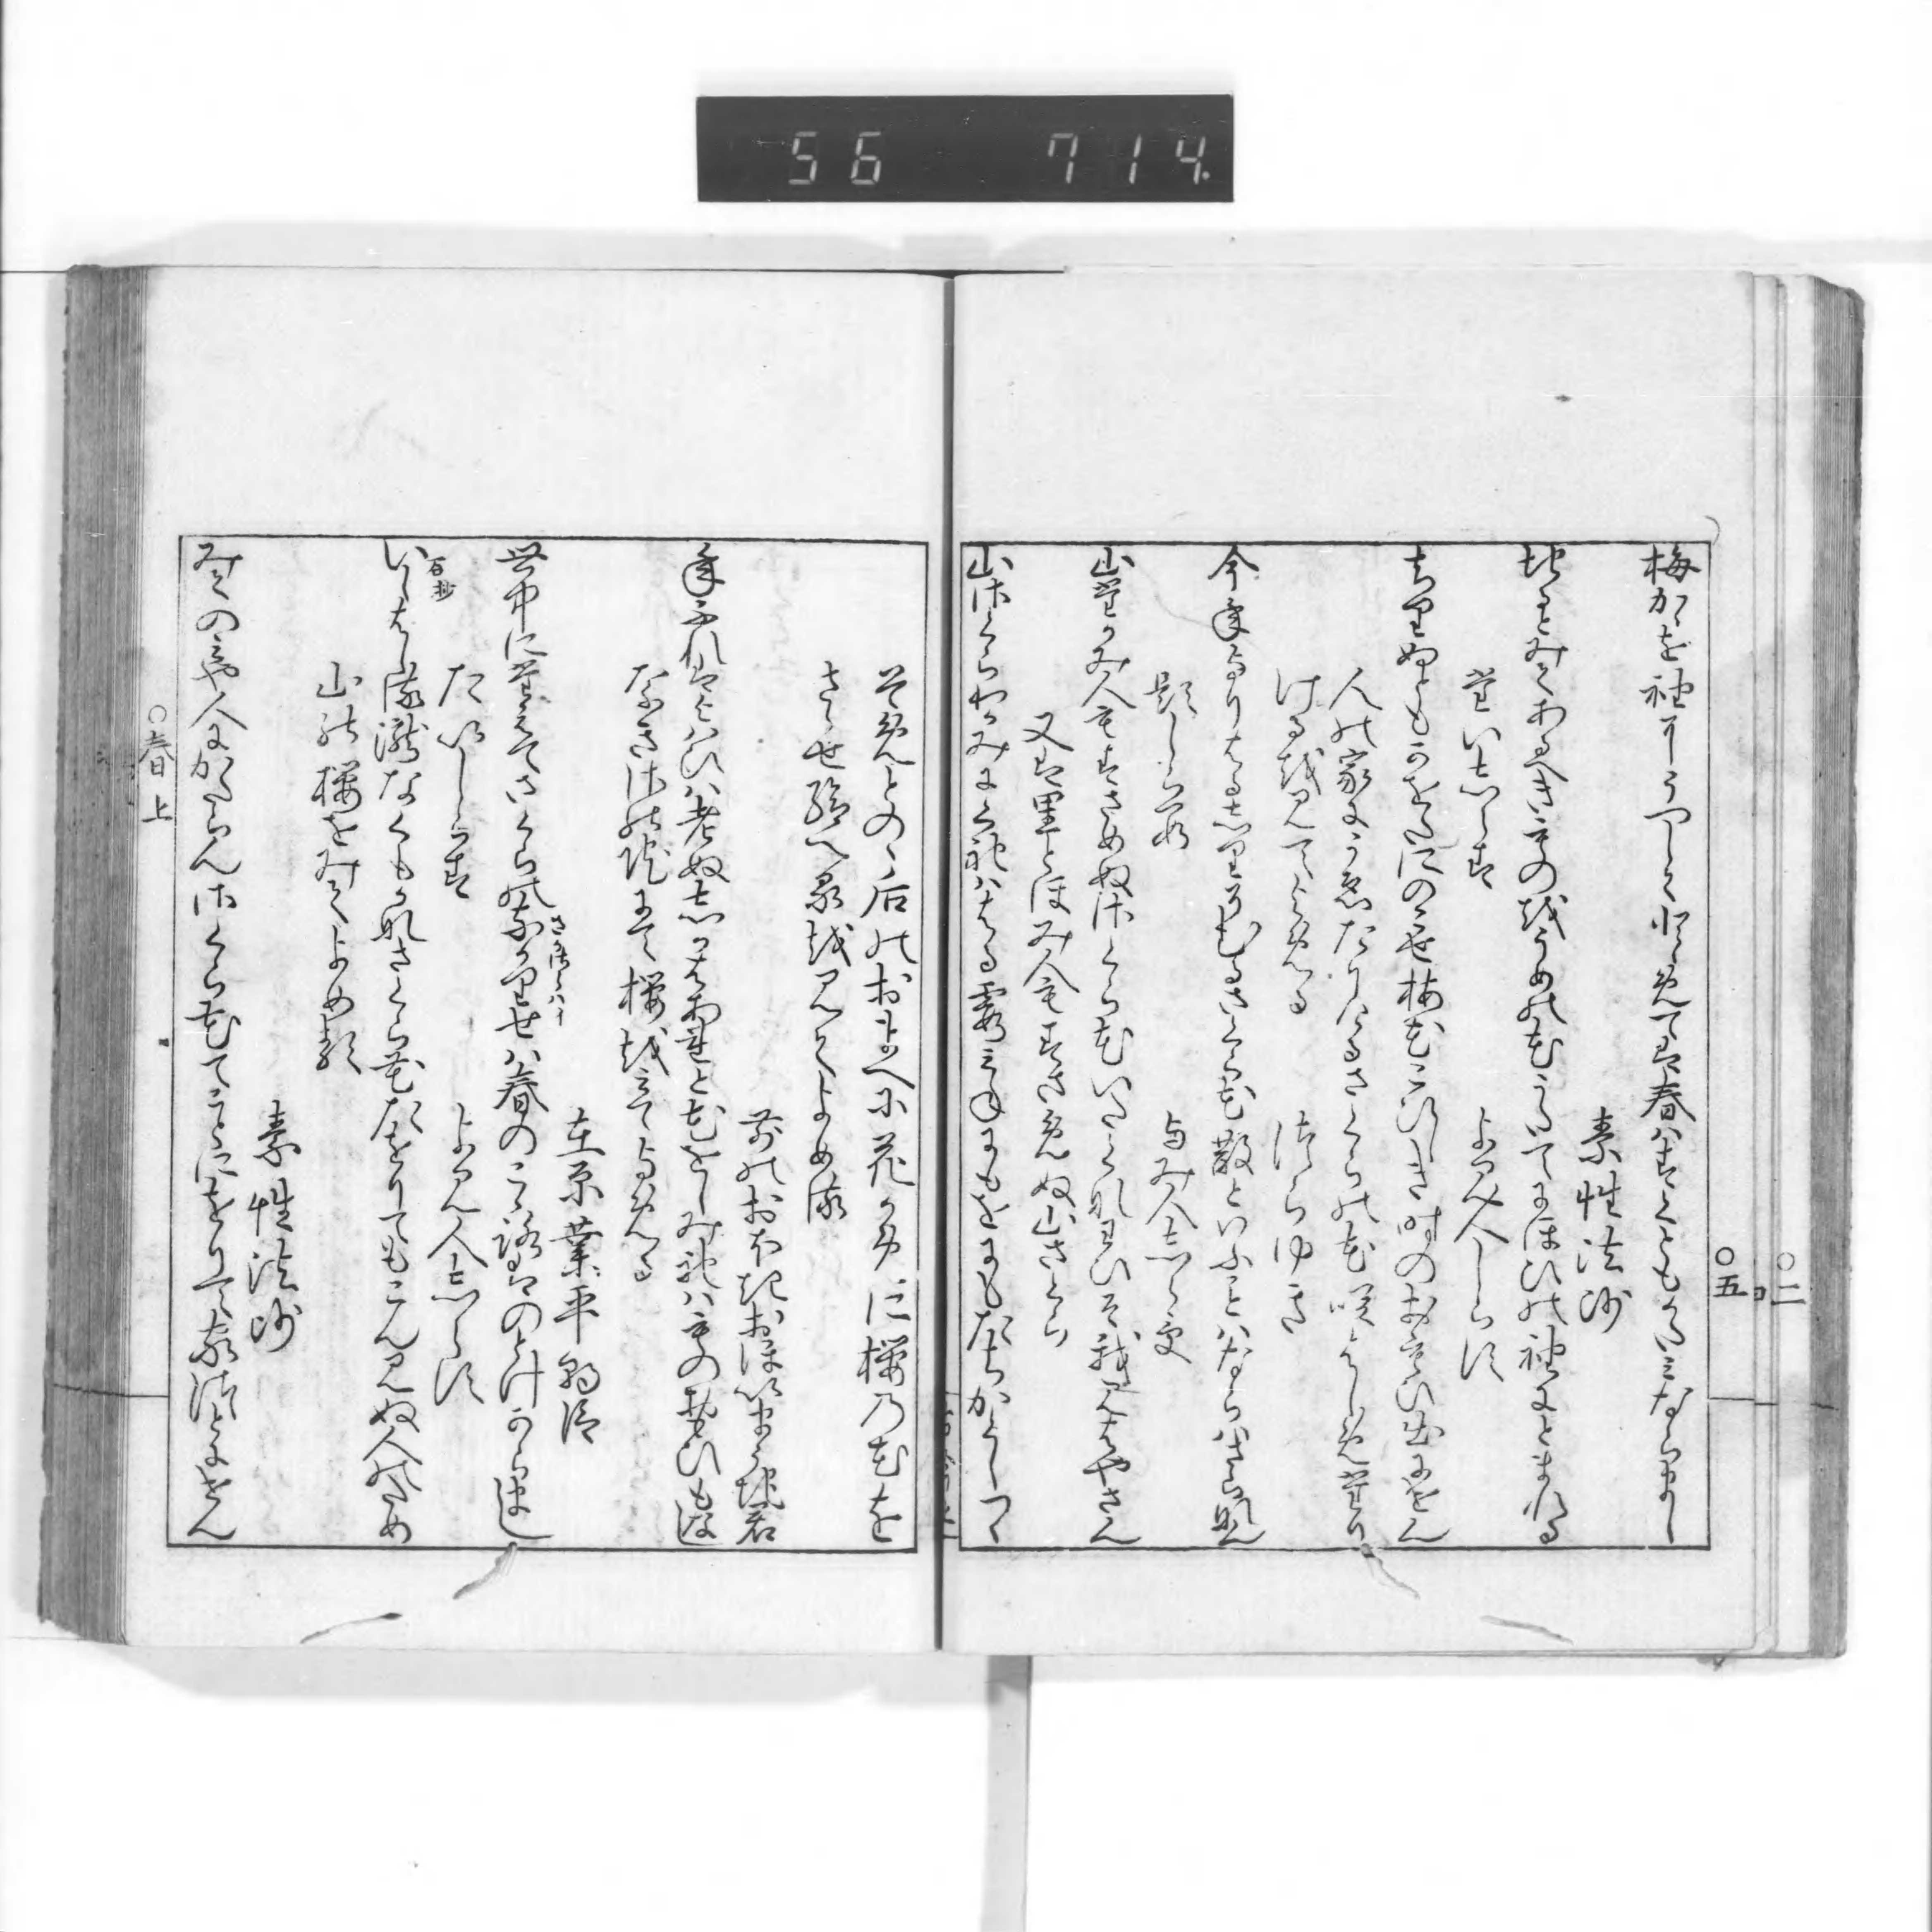 56 714.
梅かゝを袖にうつしてとゝめては春はすくともかたみならまし
素性法師
ちるとみてあるへきものをうめの花うたてにほひの袖にとまれる
たいしらす
よみ人しらす
ちりぬともかをたにのこせ梅花こひしき時のおもひ出にせん
人の家にうゑたりけるさくらの花咲はしめたり
けるをみてよめる
つらゆき
今年より春しりそむるさくら花散といふことはならはさらなん
題しらす
よみ人しらす
山たかみ人もすさめぬさくら花いたくなわひそ我みはやさん
又は里とほみ人もすさめぬ山さくら
山さくらわかみにくれははる霞みねにもをにもたちかくしつゝ
そめとのゝ后のおまへに花かめに桜の花を
さゝせ給へるをみてよめる
前のおほきおほいまうち君
年ふれはよはひは老ぬしかはあれと花をしみれはもの思ひもなし
なきさの院にて桜をみてよめる
在原業平朝臣
世中にたえてさくらのなかりせは春のこゝろはのとけからまし
たいしらす
よみ人しらす
いしはしる瀧なくもかなさくら花たをりてもこんみぬ人のため
山の桜をみてよめる
素性法師
みてのみや人にかたらんさくら花てことにをりて家つとにせん
○春上
○五
○二